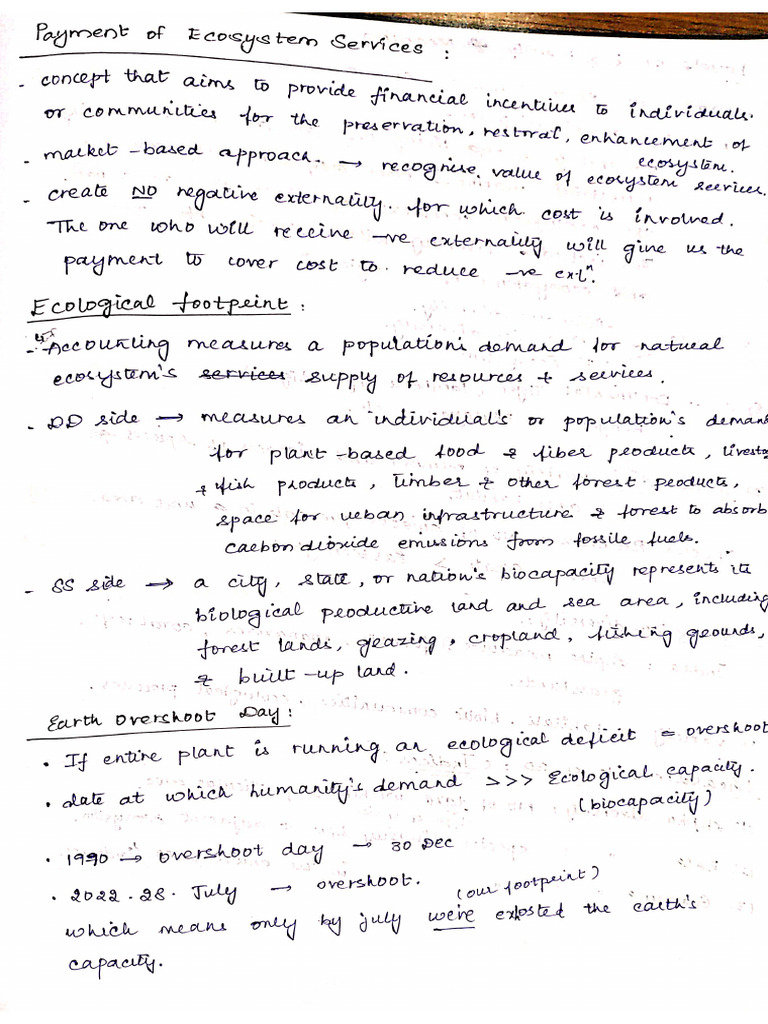 Payment of Ecosystem Services :
- concept that aims to provide financial incentives to individuals.
or communities for the preservation, restoral, enhancement of
ecosystem.
- market-based approach. → recognise value of ecosystem services.
- create NO negative externality for which cost is involved.
The one who will receive -ve externality will give us the
payment to cover cost to reduce -ve extⁿ.
Ecological footprint :
- Accounting measures a population's demand for natural
ecosystem's services supply of resources + services.
- DD side → measures an individual's or population's demand
for plant-based food & fiber products, livesto
& fish products, timber & other forest products,
space for urban infrastructure & forest to absorb
carbon dioxide emissions from fossile fuels.
- SS side → a city, state, or nation's biocapacity represents its
biological productive land and sea area, including
forest lands, grazing, cropland, fishing grounds,
& built-up land.
Earth Overshoot Day :
• If entire plant is running an ecological deficit = overshoot
• date at which humanity's demand >>> Ecological capacity.
(biocapacity)
• 1990 → overshoot day → 30 Dec
• 2022 - 28 - July → overshoot. (our footprint)
which means only by july were exhosted the earth's
capacity.